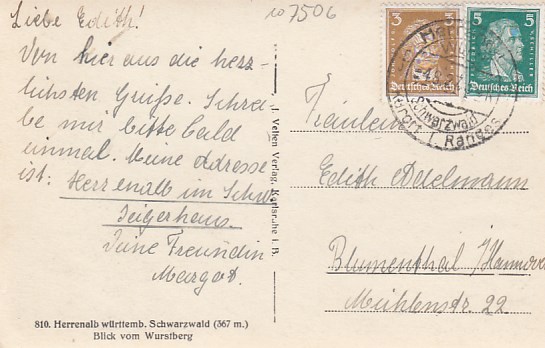 10 7506
Liebe Edith!
Von hier aus die herz-
lichsten Grüße. Schrei-
be mir bitte bald
einmal. Meine Adresse
ist: Herrenalb im Schw.
Zeigerhaus.
Deine Freundin
Margot.
810. Herrenalb württemb. Schwarzwald (367 m.)
Blick vom Wurstberg
J. Velten Verlag, Karlsruhe i. B.
3 3
Deutsches Reich
5 5
Deutsches Reich
Schwarzwald
Ranges
Fräulein
Edith Adelmann
Blumenthal / Hannover
Mühlenstr. 22